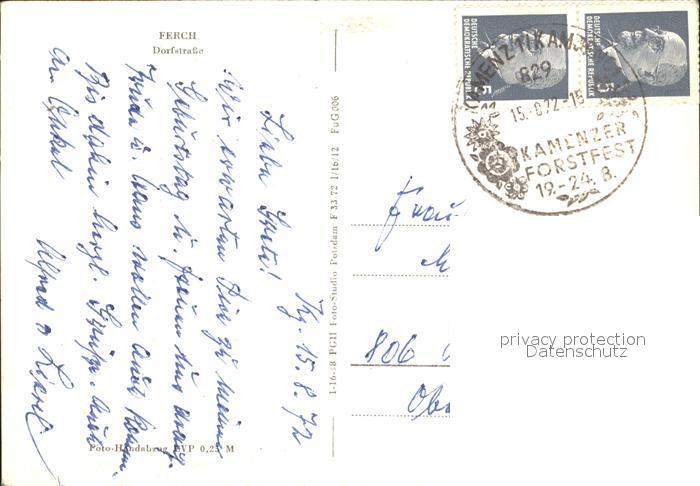 FERCH
Dorfstraße
Kg. 15.8.72
Liebe Grete!
Wir erwarten Dich zu meinem
Geburtstag u. freuen uns drauf.
Trude u. Hans wollen auch kommen.
Bis dahin herzl. Grüße. Auch
an Onkel
Alfred u. Liesel
Foto-Handabzug EVP 0,25 M
1-16-18 PGH Foto-Studio Potsdam F 33.72 I/16/12 FuG 006
DEUTSCHE
DEMOKRATISCHE REPUBLIK
5
DEUTSCHE
DEMOKRATISCHE REPUBLIK
5
KAMENZ 1 (KAM
829
15.-8.72-15
KAMENZER
FORSTFEST
19.-24. 8.
Frau
806
Obe
privacy protection
Datenschutz